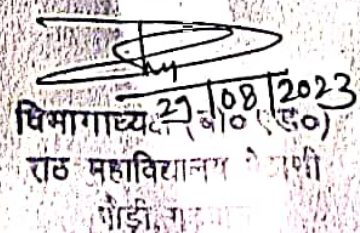 29/08/2023
विभागाध्यक्ष (बी० एड०)
राठ महाविद्यालय पैठाणी
पौड़ी,